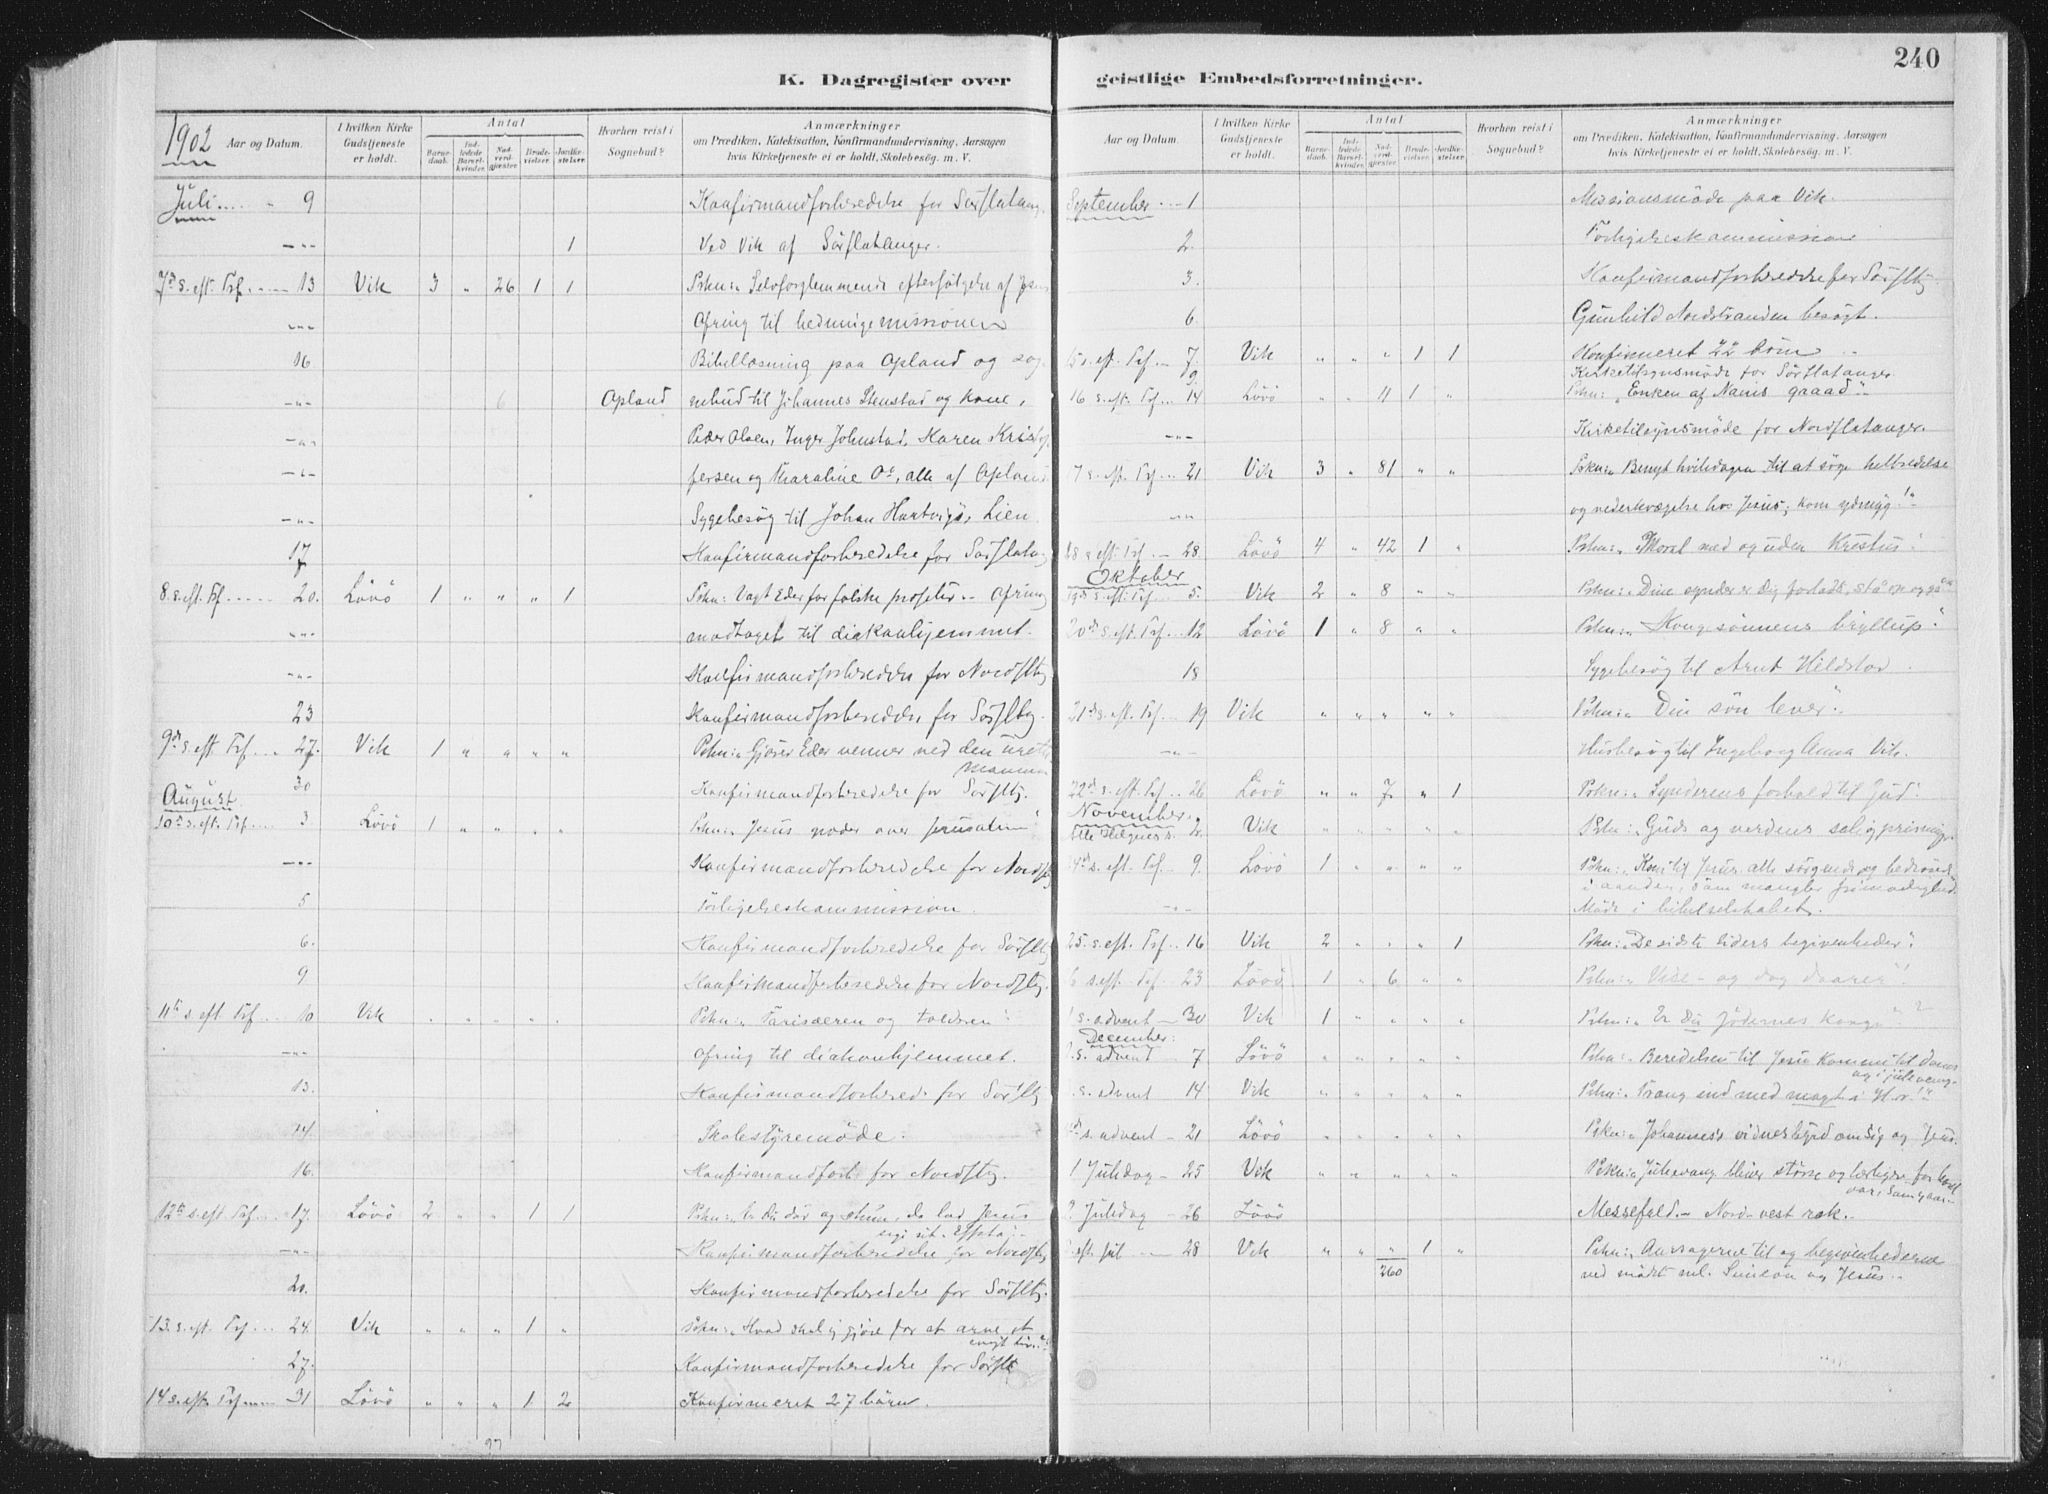 240
K. Dagregister over
1902 Aar og Datum.
I hvilken Kirke Gudstjeneste er holdt.
Antal
Barnedaab. Indledede Barselkvinder. Nadverdgjester. Brudevielser. Jordfæstelser.
Hvorhen reist i Sognebud?
Anmærkninger
om Prædiken, Katekisation, Konfirmandundervisning, Aarsagen
hvis Kirketjeneste ei er holdt, Skolebesög. m. V.
Juli.... " 9 Konfirmandforberedelse for Sörflatang.
—"— 1 Ved Vik af Sörflatanger.
7de s. eft. Trf. .... 13 Vik 3 " 26 1 1 Prkn: Selvforglemmende efterfölgelse af Jesus
—"— Ofring til hedningemissionen
16 Bibellæsning paa Opland og sog-
—"— 6 Opland nebud til Johannes Stenstad og kone,
—"— Peder Olsen, Inger Johnstad, Karen Kristof-
—"— persen og Karoline Os, alle af Opland
—"— Sygebesög til Johan Hartvigs. Lien
17 Konfirmandforberedelse for Sörflatang
8. s. eft. Trf ..... 20. Lövö 1 " " " 1 Prkn: Vogt Eder for falske profeter. – Ofring
—"— modtaget til diakonhjemmet.
—"— Konfirmandforberedelse for Nordfltg
23 Konfirmandforberedelse for Sörfltg.
9de s. eft. Trf... 27. Vik 1 " " " " Prkn: „Gjörer Eder venner ved den uretf.
mammon
30 Konfirmandforberedelse for Sörfltg.
August.
10de s. eft. Trf.... 3 Lövö 1 " " " " Prkn: „Jesus græder over Jerusalem"
—"— Konfirmandforberedelse for Nordfltg
5 Forligelseskommission.
6. Konfirmandforberedelse for Sörfltg
9 Konfirmandforberedelse for Nordfltg.
11te s. eft. Trf... 10 Vik " " " " " Prkn: „Farisæeren og tolderen".
—"— Ofring til diakonhjemmet.
13. Konfirmandforbered. for Sörfltg
14. Skolestyremöde.
16. Konfirmandforb. for Nordfltg.
12te s. eft. Trf.... 17. Lövö 2 " " 1 1 Prkn: „Er Du döv og stum, da lad Jesus
sige sit „Effata".–
—"— Konfirmandforberedelse for Nordfltg
20. Konfirmandforberedelse for Sörfltg.
13. s. eft. Trf.... 24. Vik " " " 1 " Prkn: „Hvad skal jeg gjöre for at arve et
evigt liv?"
27. Konfirmandforberedelse for Sörflt
14 s. eft. Trf.... 31 Lövö " " " 1 2 Konfirmeret 27 börn.
geistlige Embedsforretninger.
Aar og Datum
I hvilken Kirke Gudstjeneste er holdt.
Antal
Barnedaab. Indledede Barselkvinder. Nadverdgjester. Brudevielser. Jordfæstelser.
Hvorhen reist i Sognebud?
Anmærkninger
om Prædiken, Katekisation, Konfirmandundervisning, Aarsagen
hvis Kirketjeneste ei er holdt, Skolebesög. m. V.
September ... 1 Missionsmöde paa Vik.
2. Forligelseskommission
3. Konfirmandforberedelse for Sörfltg.
6. Gunhild Nordstranden besögt.
15 s. eft. Trf. — 7. Vik " " " 1 1 Konfirmeret 22 börn
9 Kirketilsynsmöde for Sörflatanger
16 s. eft. Trf... 14 Lövö " " 11 1 " Prkn: „Enken af Nains gaard".
—"— Kirketilsynsmöde for Nordflatanger.
17 s. eft. Trf... 21 Vik 3 " 81 " " Prkn: „Benyt hviledagen til at söge helbredelse
—"— og vederkvægelse hos Jesus; kom ydmyg!"
18 s. eft. Trf. — 28. Lövö 4 " 42 1 " Prkn: „Moral med og uden Kristus".
Oktober
19de s. eft. Trf... 5. Vik 2 " 8 " " Prkn: „Dine synder er Dig forladte, stå op og gå"
20de s. eft. Trf.. 12 Lövö 1 " 8 " " Prkn: „Kongesönnens bryllup".
18 Sygebesög til Arnt Hildstov.
21de s. eft. Trf.. 19 Vik " " " " " Prkn: „Din sön lever".
—"— Husbesög til Ingeborg Anna Vik.
22de s. eft. Trf.. 26 Lövö " " 7. " 1 Prkn: „Synderens forhold til Gud".
November.
Alle Helgenes s. 2. Vik " " " " " Prkn: „Guds og verdens saligprisninger
24de s. eft. Trf. 9. Lövö 1 " " " " Prkn: „Kom til Jesus, alle sörgende og bedrövede
i aanden, som mangler frimodighed.
—"— Möde i bibelselskabet.
25. s. eft. Trf.. 16 Vik 2 " " " 1 Prkn: „De sidste tiders begivenheder".
26 s. eft. Trf 23 Lövö 1 " 6 " " Prkn: „Vise– og dog daarer"!
1 s. advent — 30 Vik 1 " " " " Prkn: „Er Du Jödernes konge"?
December:
2. s. advent 7 Lövö " " " " " Prkn: „Beredelsen til Jesu komme til dom
og i julevang.
3. s. advent 14 Vik " " " " " Prkn: „Trang ind med magt i H. r.!"
4de s. advent — 21 Lövö " " " " " Prkn: „Johannes's vidnesbyrd om sig og Jesus.
1 Juledag — 25 Vik " " " " " Prkn: „Julevang. bliver större og herligere for hvert
aar, som gaar.–
2 Juledag — 26 Lövö Messefald – Nord-vest rok. –
s. eft. jul — 28 Vik " " " 1 " Prkn: „Aarsagerne til og begivenhederne
260 ved mödet ml. Simeon og Jesus..